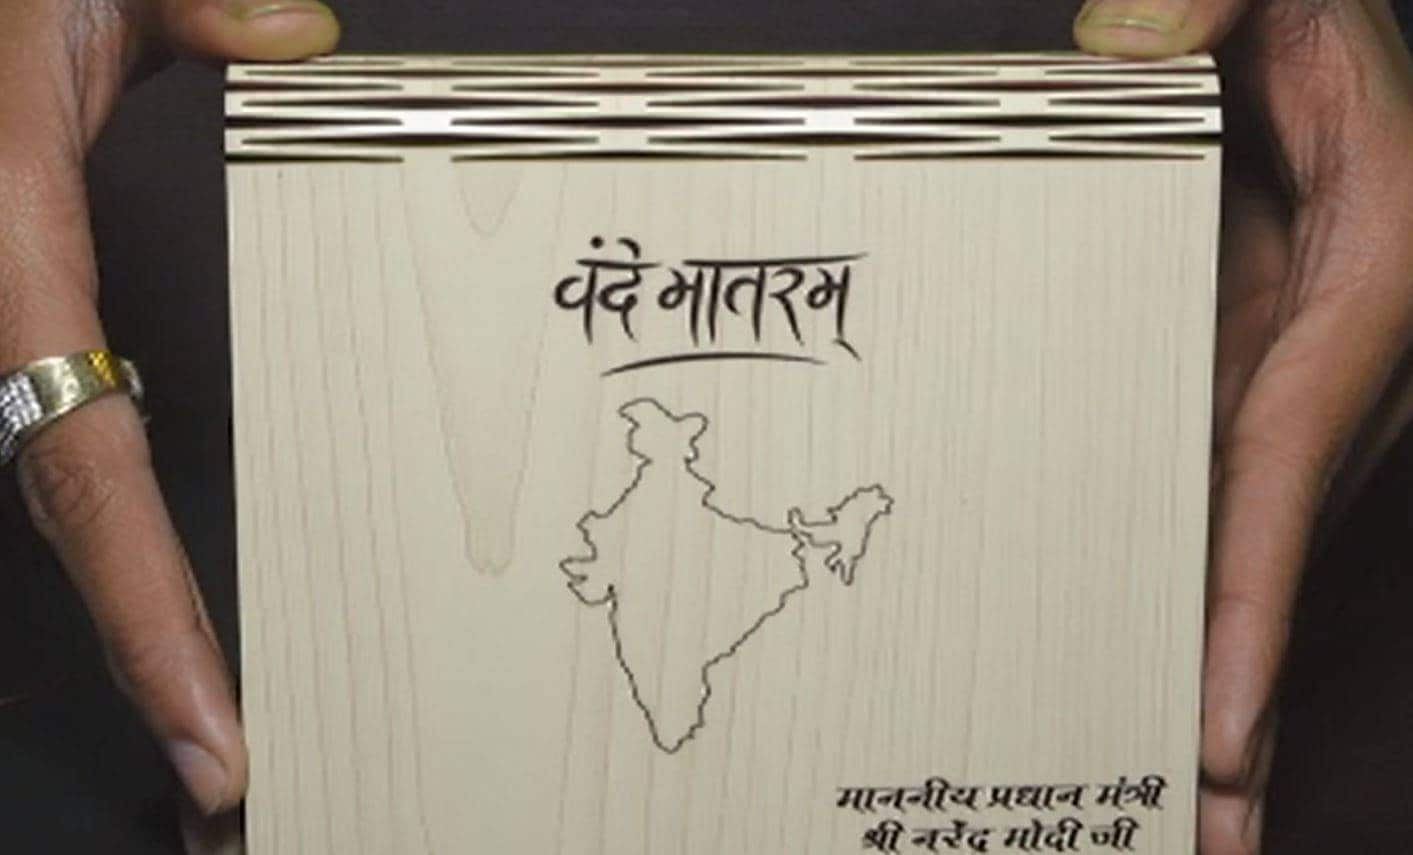 वंदे मातरम्
माननीय प्रधान मंत्री
श्री नरेंद्र मोदी जी